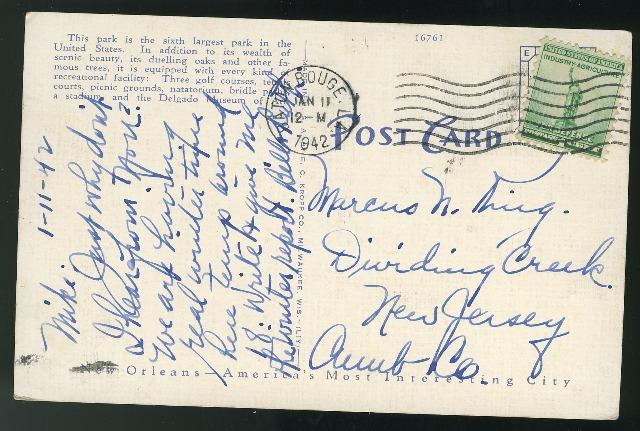 This park is the sixth largest park in the
United States. In addition to its wealth of
scenic beauty, its duelling oaks and other fa-
mous trees, it is equipped with every kind
recreational facility: Three golf courses,
courts, picnic grounds, natatorium, bridle
a stadium and the Delgado Museum of
16761
BATON ROUGE,
JAN 11
12-M
1942
POST CARD
UNITED STATES OF AMERICA
INDUSTRY-AGRICULTURE
1-11-42
Mike Just why don't
I hear from you?
We are having
real winter time
here temp around
48. Write & give me
winter report. Bill
C. KROPP CO., MILWAUKEE, WIS.
Marcus N. King.
Dividing Creek.
New Jersey
Cumb Co.
New Orleans—America's Most Interesting City